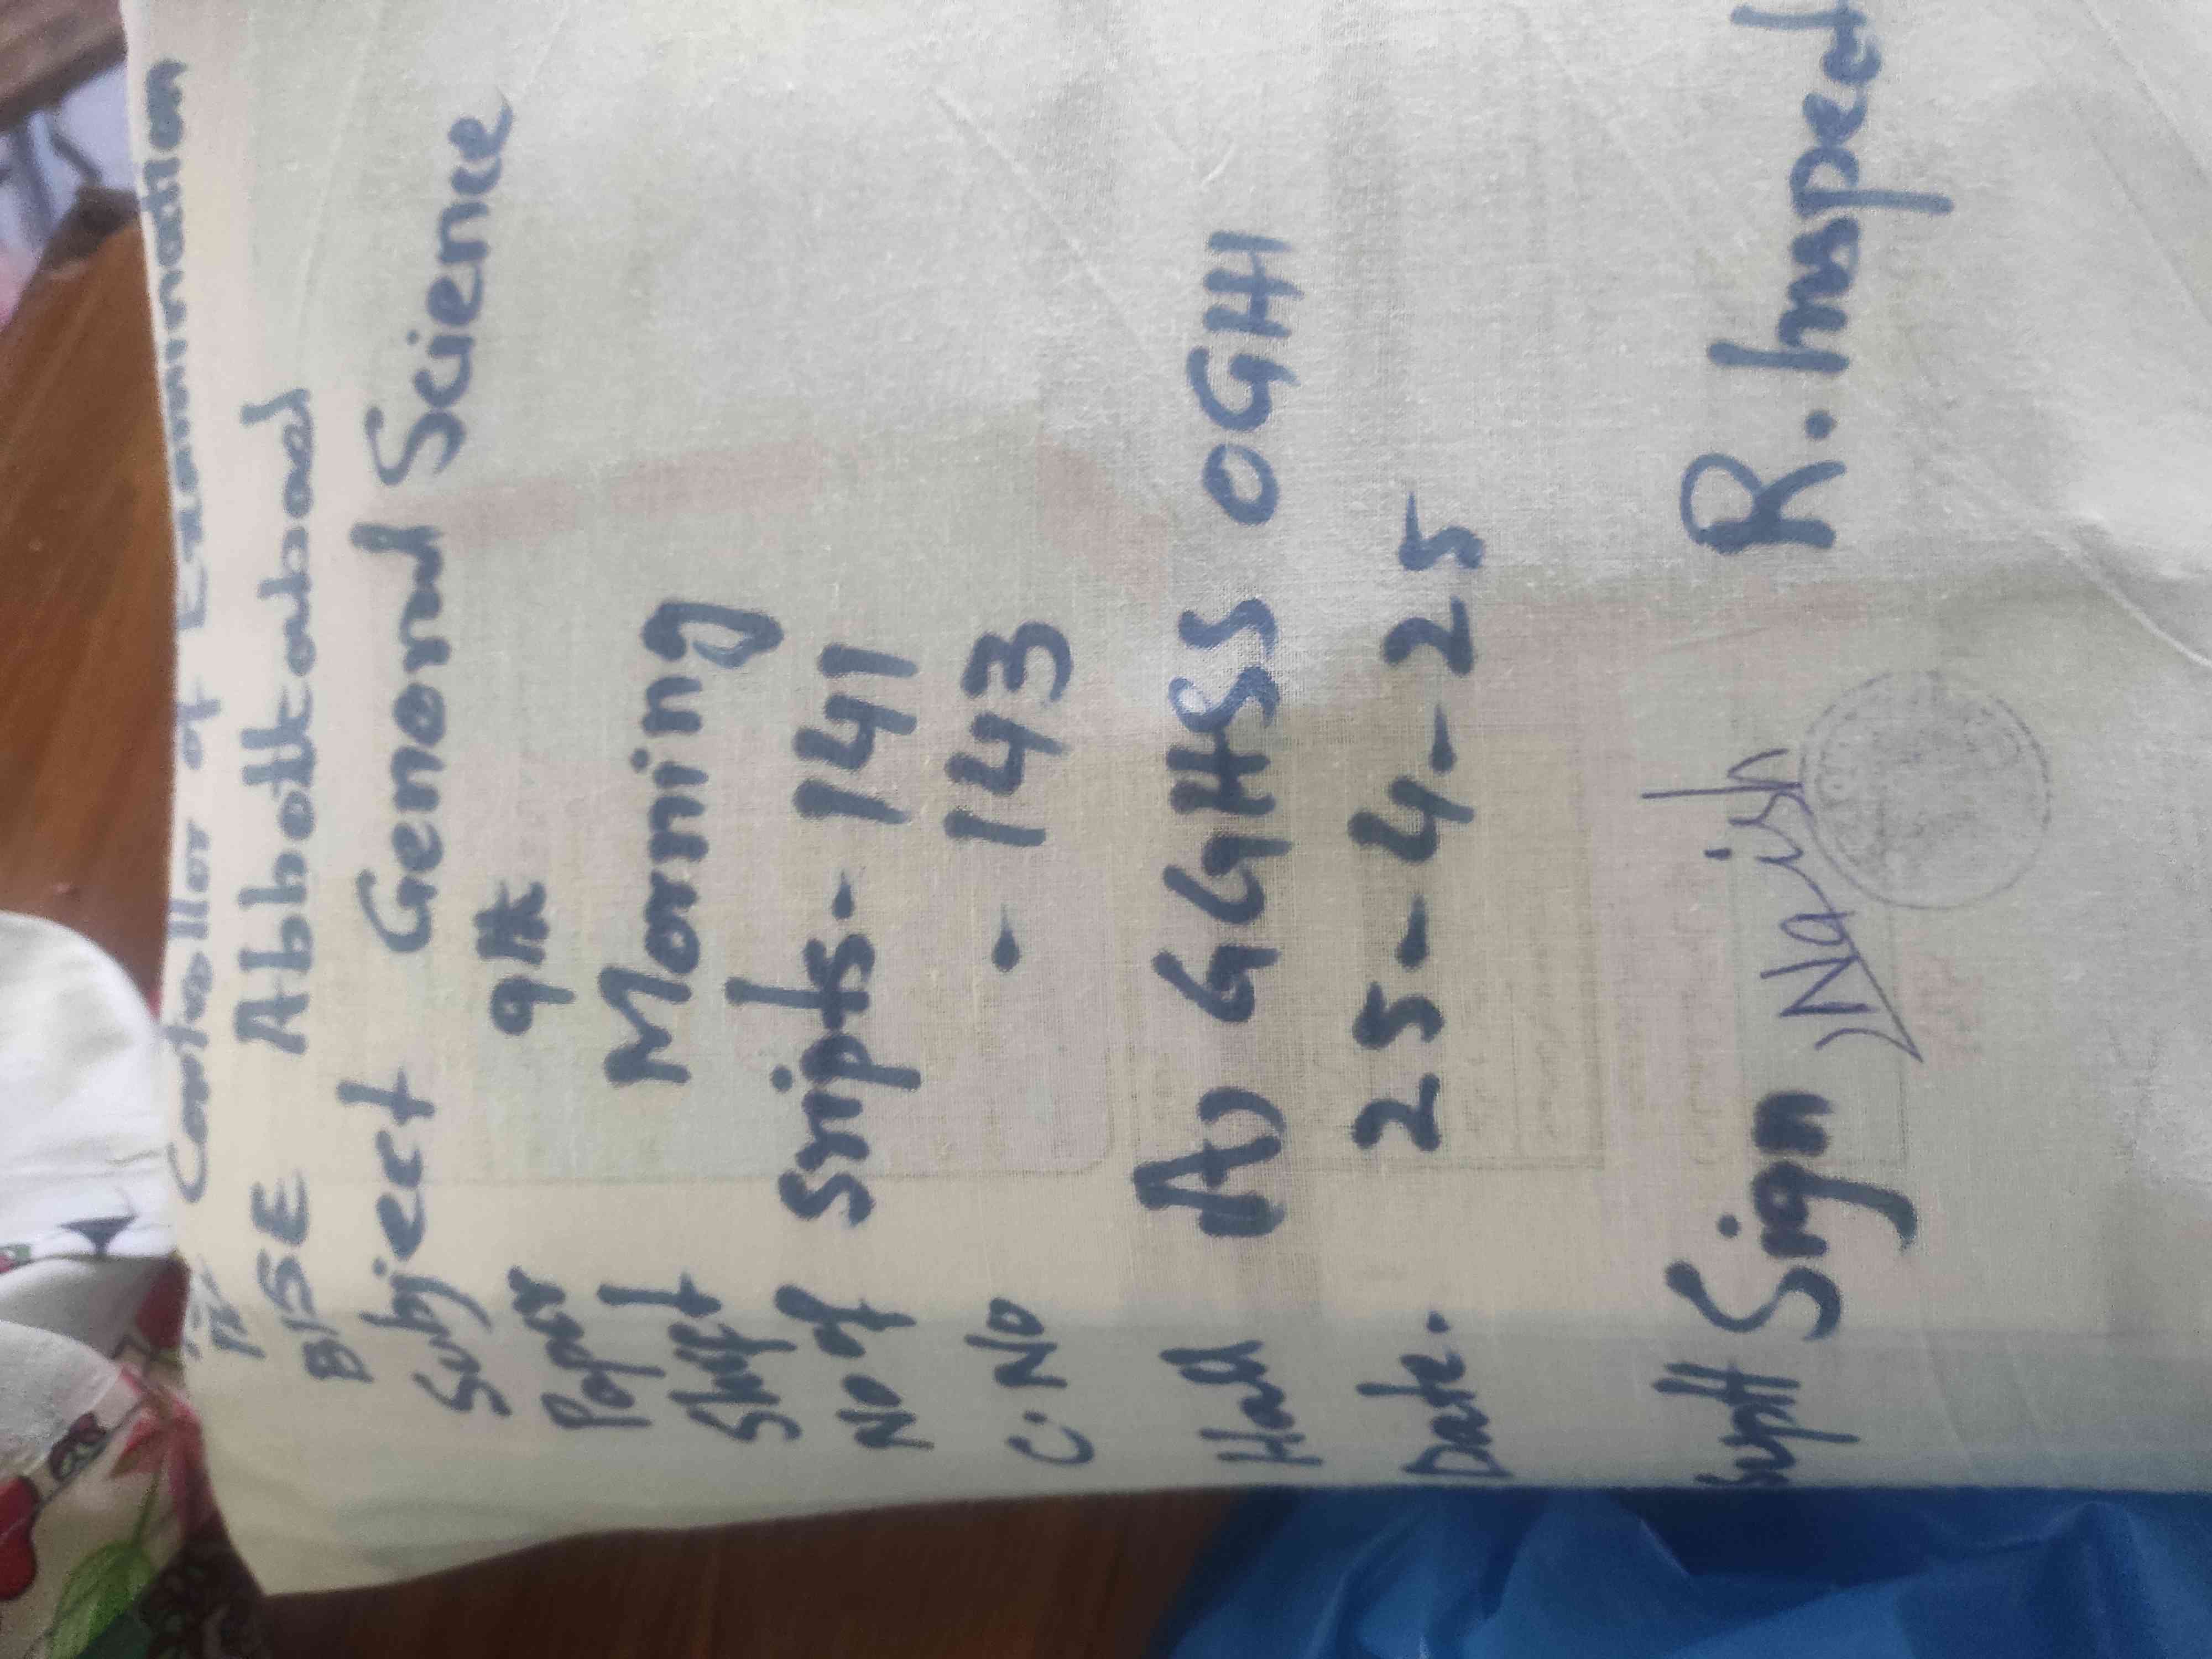 The Controller of Examination
BISE Abbottabad
Subject General Science
Paper 9th
Shift Morning
No of sripts - 141
C. No - 143
Hall A) GGHSS OGHI
Date. 25-4-25
Suptt Sign Narjsh R. Inspect